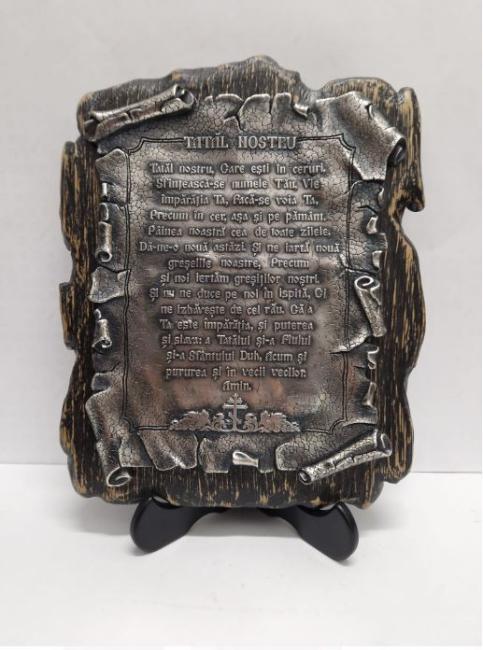 TATĂL NOSTRU
Tatăl nostru, Care ești în ceruri,
Sfințească-se numele Tău, Vie
împărăția Ta, Facă-se voia Ta,
Precum în cer, așa și pe pământ.
Pâinea noastră cea de toate zilele,
Dă-ne-o nouă astăzi. Și ne iartă nouă
greșelile noastre, Precum
și noi iertăm greșiților noștri.
Și nu ne duce pe noi în ispită, Ci
ne izbăvește de cel rău. Că a
Ta este împărăția, și puterea
și slava: a Tatălui și-a Fiului
și-a Sfântului Duh, Acum și
pururea și în vecii vecilor.
Amin.